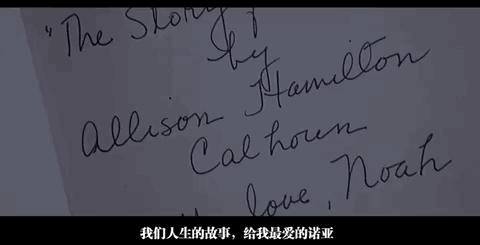 "The Story
by
Allison Hamilton
Calhoun
love, Noah
我们人生的故事，给我最爱的诺亚